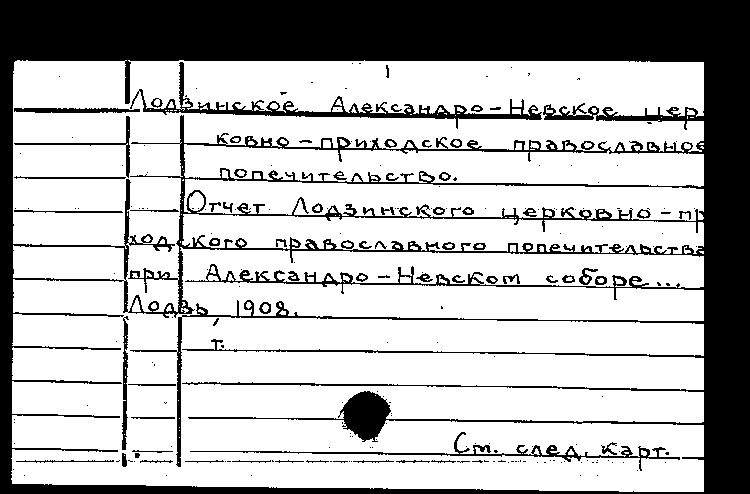 Лодзинское Александро-Невское цер-
ковно-приходское православное
попечительство.
Отчет Лодзинского церковно-пр
ходского православного попечительства
при Александро-Невском соборе...
Лодзь, 1908.
т.
См. след. карт.